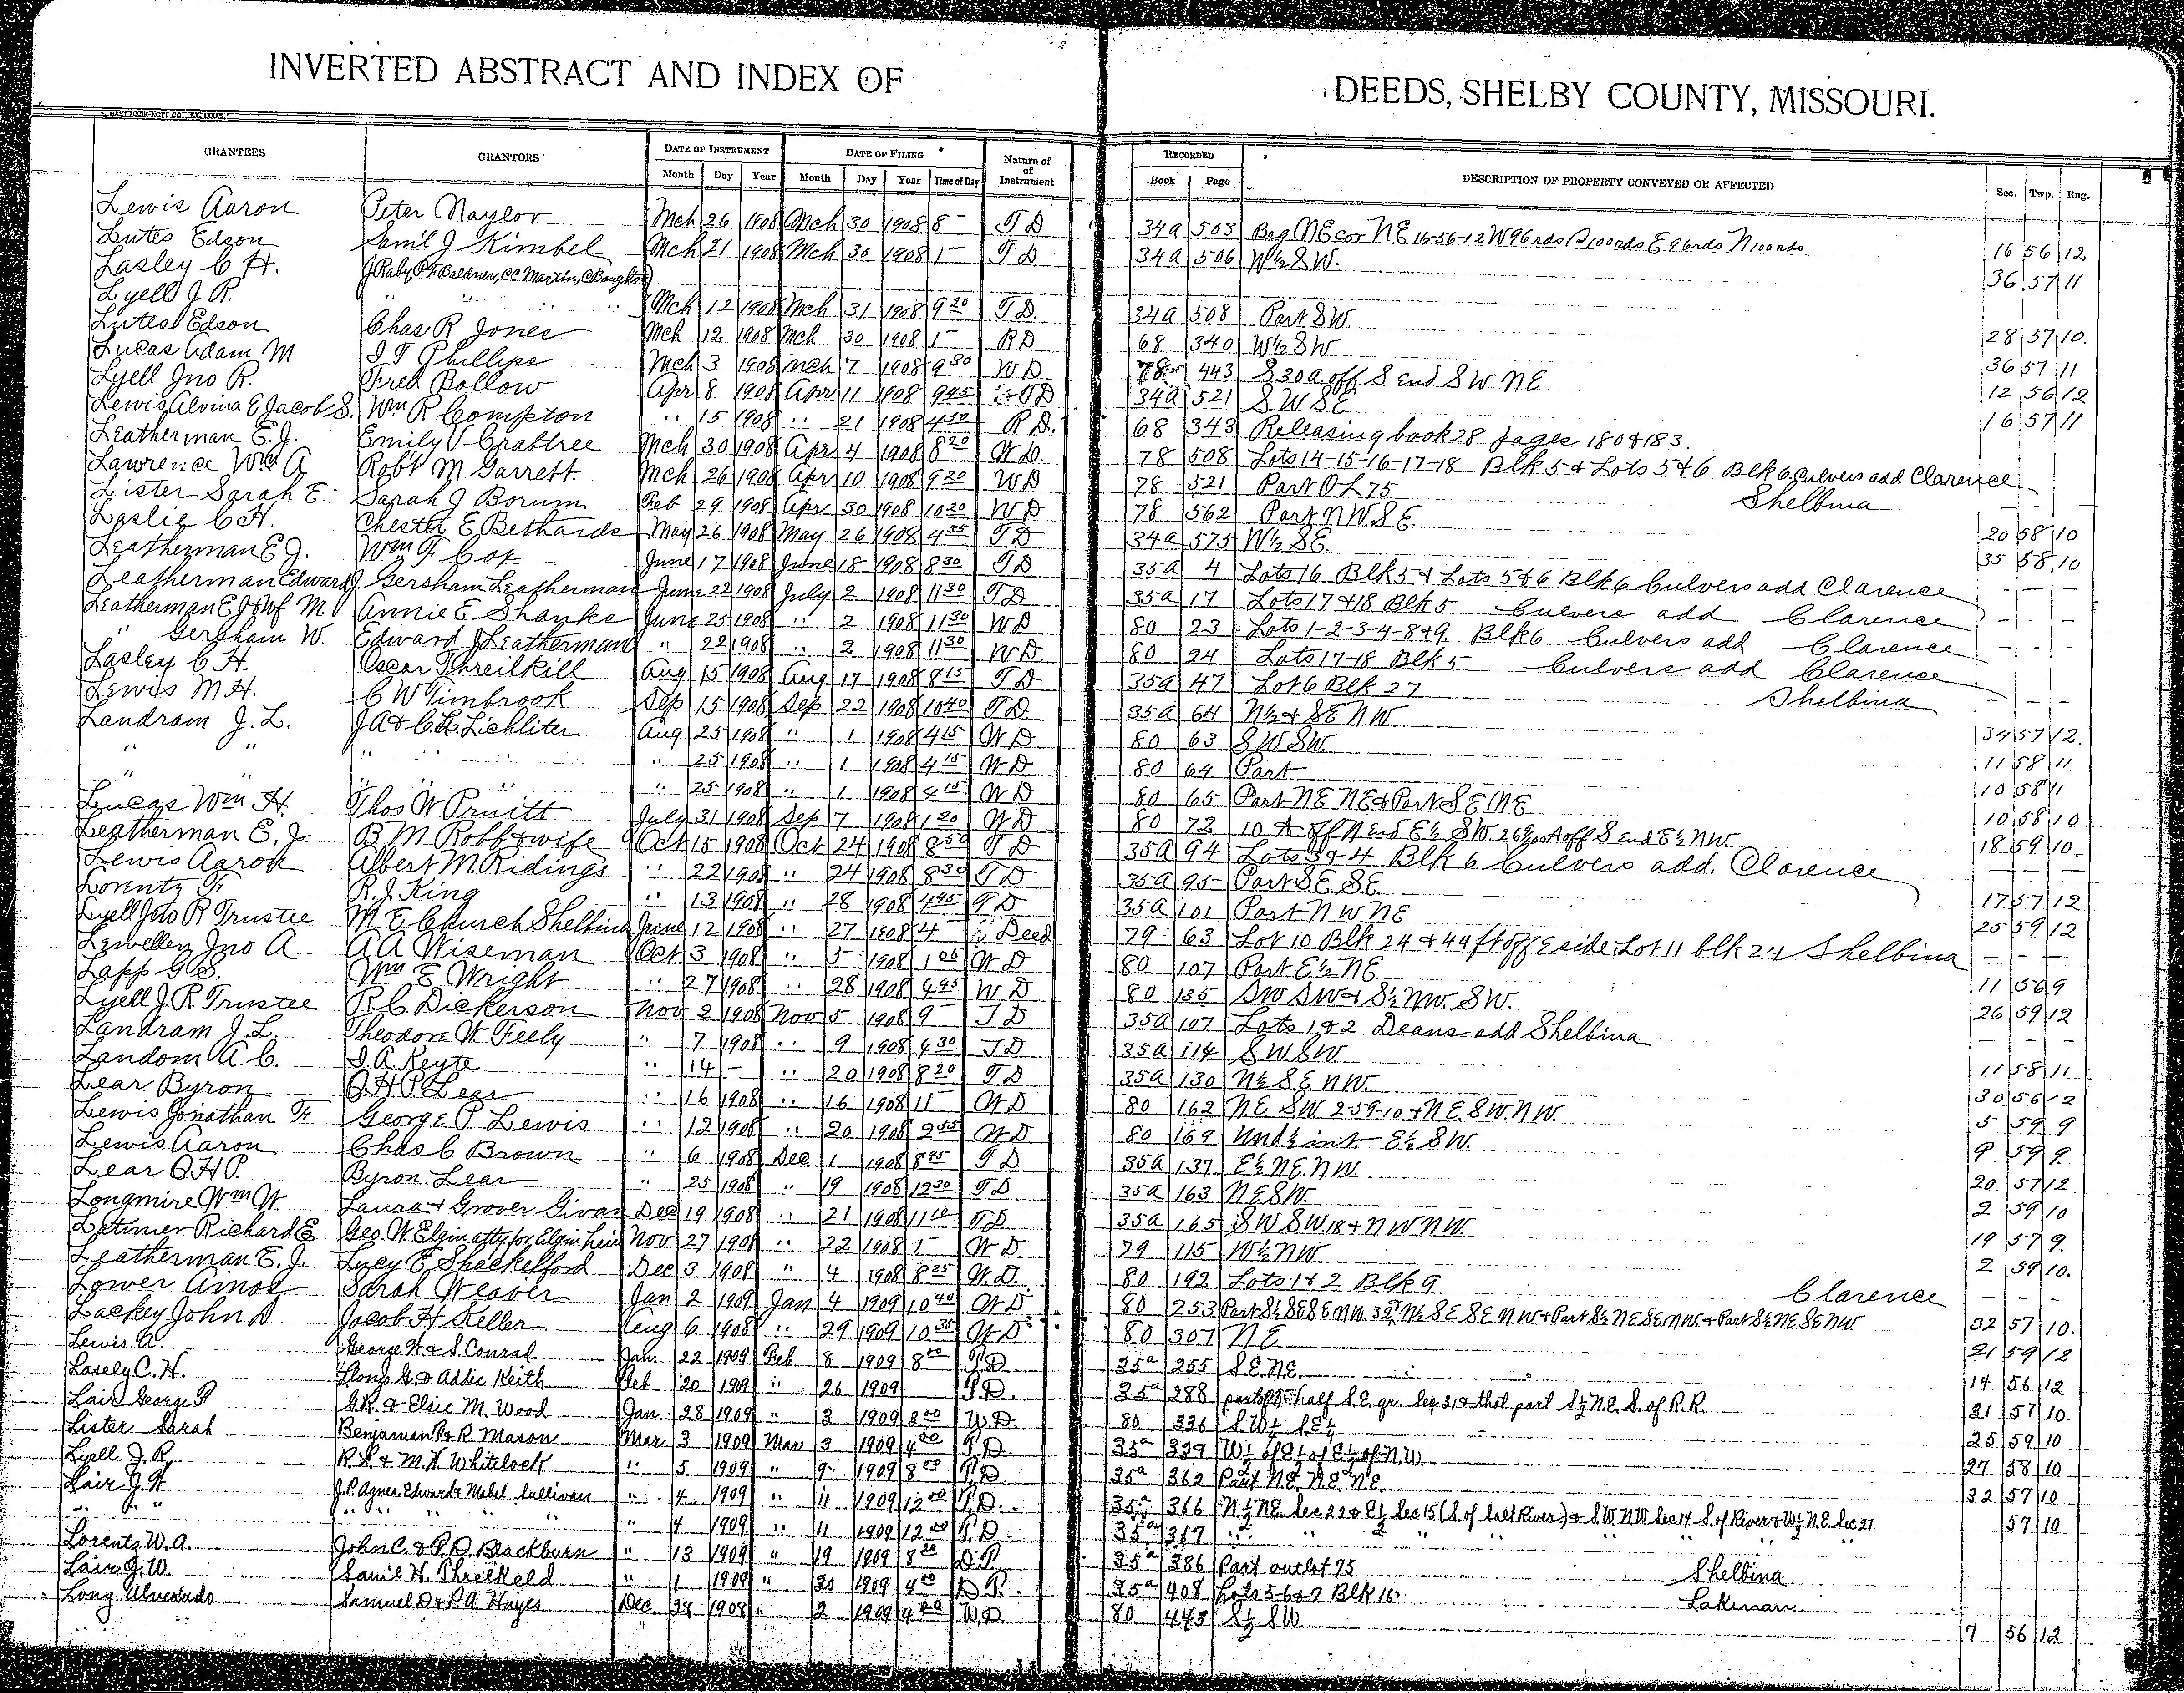 INVERTED ABSTRACT AND INDEX OF DEEDS, SHELBY COUNTY, MISSOURI.
GRANTEES GRANTORS DATE OF INSTRUMENT DATE OF FILING Nature of Instrument RECORDED DESCRIPTION OF PROPERTY CONVEYED OR AFFECTED Sec. Twp. Rng.
Month Day Year Month Day Year Time of Day Book Page
Lewis Aaron Peter Naylor Mch 26 1908 Mch 30 1908 8 - T D 34a 503 Beg NE cor NE 16-56-12 W 96 rds S 100 rds E 96 rds N 100 rds 16 56 12
Lutes Edson Saml J Kimbel Mch 21 1908 Mch 30 1908 1 - T D 34a 506 W½ SW. 36 57 11
Lasley C H. J Raby P F Baldner, CC Martin, C Boughton
Lyell J R. " " Mch 12 1908 Mch 31 1908 9 20 T D. 34a 508 Part SW. 28 57 10.
Lutes Edson Chas R Jones Mch 12 1908 Mch 30 1908 1 - R D 68 340 W½ SW 36 57 11
Lucas Adam M I T Phillips Mch 3 1908 Mch 7 1908 9 30 W D 78 443 S 30 a off S end SW NE 12 56 12
Lyell Jno R. Fred Bollow Apr 8 1908 Apr 11 1908 9 45 T D 34a 521 SW SE 16 57 11
Lewis Alvina E Jacob S. Wm R Compton " 15 1908 " 21 1908 4 50 R D. 68 343 Releasing book 28 pages 180 & 183.
Leatherman E. J. Emily V Crabtree Mch 30 1908 Apr 4 1908 8 20 W D. 78 508 Lots 14-15-16-17-18 Blk 5 & Lots 5 & 6 Blk 6 Culvers add Clarence
Lawrence Wm A Robt M Garrett. Mch 26 1908 Apr 10 1908 9 20 W D 78 521 Part O L 75 Shelbina
Lister Sarah E. Sarah J Borum Feb 29 1908 Apr 30 1908 10 20 W D 78 562 Part NW SE. 20 58 10
Laslie C H. Chester E Bethards May 26 1908 May 26 1908 4 35 T D 34a 575 W½ SE. 35 58 10
Leatherman E J. Wm F Cox June 17 1908 June 18 1908 8 30 T D 35a 4 Lots 16 Blk 5 & Lots 5 & 6 Blk 6 Culvers add Clarence - - -
Leatherman Edward J. Gersham Leatherman June 22 1908 July 2 1908 11 30 T D 35a 17 Lots 17 & 18 Blk 5 Culvers add Clarence - - -
Leatherman E J & Wf M. Annie E Shanks June 25 1908 " 2 1908 11 30 W D 80 23 Lots 1-2-3-4-8 & 9. Blk 6 Culvers add Clarence - - -
" Gersham W. Edward J Leatherman " 22 1908 " 2 1908 11 30 W D. 80 24 Lots 17-18 Blk 5 Culvers add Clarence
Lasley C H. Oscar Threilkill Aug 15 1908 Aug 17 1908 8 15 T D 35a 47 Lot 6 Blk 27 Shelbina - - -
Lewis M H. C W Timbrook Sep 15 1908 Sep 22 1908 10 40 T D. 35a 64 N½ & SE NW. 34 57 12.
Landram J. L. J A & C. L. Lichliter Aug 25 1908 " 1 1908 4 15 W D 80 63 SW SW. 11 58 11
" " " " " 25 1908 " 1 1908 4 15 W D 80 64 Part 10 58 11
" " " " " 25 1908 " 1 1908 4 15 W D 80 65 Part NE NE & Part SE NE 10 58 10
Lucas Wm H. Thos W Pruitt July 31 1908 Sep 7 1908 1 20 W D 80 72 10 A off N end E½ SW. A off S end E½ NW. 18 59 10.
Leatherman E. J. B. M. Robb & wife Oct 15 1908 Oct 24 1908 8 50 T D 35a 94 Lots 3 & 4 Blk 6 Culvers add. Clarence - - -
Lewis Aaron Albert M. Ridings " 22 1908 " 24 1908 8 30 T D 35a 95 Part SE. SE. 17 57 12
Lorentz F R. J. King " 13 1908 " 28 1908 4 45 T D 35a 101 Part NW NE 25 59 12
Lyell Jno R Trustee M. E Church Shelbina June 12 1908 " 27 1908 4 - Deed 79 63 Lot 10 Blk 24 & 44 ft off E side Lot 11 blk 24 Shelbina - - -
Lewellen Jno A A A Wiseman Oct 3 1908 " 5 1908 1 05 W D 80 107 Part E½ NE 11 56 9
Lapp G S. Wm E Wright " 27 1908 " 28 1908 4 45 W D 80 135 SW SW & S½ NW. SW. 26 59 12
Lyell J. R. Trustee R. C. Dickerson Nov 2 1908 Nov 5 1908 9 - T D 35a 107 Lots 1 & 2 Deans add Shelbina - - -
Landram J. L. Theodore W Feely " 7 1908 " 9 1908 4 30 T D 35a 114 SW SW. 11 58 11
Landom A. C. I. A. Keyte " 14 - " 20 1908 8 20 T D 35a 130 N½ SE NW. 30 56 12
Lear Byron O. H. P. Lear " 16 1908 " 16 1908 11 - W D 80 162 NE SW 2-59-10 & NE. SW. NW. 5 59 9
Lewis Jonathan F. George P Lewis " 12 1908 " 20 1908 2 55 W D 80 169 Und ½ int E½ SW. 9 59 9.
Lewis Aaron Chas C Brown " 6 1908 Dec 1 1908 8 45 T D 35a 137 E½ NE. NW. 20 57 12
Lear O H P. Byron Lear " 25 1908 " 19 1908 12 30 T D 35a 163 NE SW. 2 59 10
Longmire Wm W Laura & Grover Givan Dec 19 1908 " 21 1908 11 10 T D 35a 165 SW SW 18 & NW NW. 19 57 9.
Latimer Richard E Geo. W. Elgin atty for Elgin heirs Nov 27 1908 " 22 1908 1 - W D 79 115 W½ NW 2 59 10.
Leatherman E. J. Lucy E Shackelford Dec 3 1908 " 4 1908 8 25 W. D. 80 192 Lots 1 & 2 Blk 9 Clarence - - -
Lower Amos Sarah Weaver Jan 2 1909 Jan 4 1909 10 40 W D 80 253 Part S½ SE SE NW. N½ SE SE NW & Part S½ NE SE NW. & Part S½ NE SE NW. 32 57 10.
Lackey John D Jacob H Keller Aug 6 1908 " 29 1909 10 35 W D 80 307 NE. 21 59 12
Lewis A. George W. & S. Conrad Jan. 22 1909 Feb 8 1909 8 00 T D 35a 255 S.E. N.E. 14 56 12
Lasely C. H. G. & Addie Keith Feb 20 1909 " 26 1909 T. D. 35a 288 half S. E. qr. Seg. 31, & that part S½ N.E. S. of R. R. 31 57 10
Lair George T G. R. & Elsie M. Wood Jan 28 1909 " 3 1909 3 00 W. D. 80 336 S. W¼ S. E¼ 25 59 10
Lister Sarah Benjaman P & R Mason Mar 3 1909 Mar 3 1909 4 00 T. D. 35a 339 W½ of E½ of E½ of N.W. 27 58 10
Lyell J. R. R. S. & M. H. Whitelock " 5 1909 " 9 1909 8 00 T. D 35a 362 Part N.E. N.E. N.E. 32 57 10
Lair J. W J. P. Agnes, Edward & Mabel Sullivan " 4 1909 " 11 1909 12 00 T. D. 35a 366 N½ NE. Sec 22 & E½ Sec 15 (S. of Salt River) & S.W. N.W Sec 14 S. of River & W½ N.E. Sec 27 57 10
" " " " " " 4 1909 " 11 1909 12 00 T. D. 35a 367 " " " " "
Lorentz W. A. John C. & P. D. Blackburn " 13 1909 " 19 1909 8 20 D. T. 35a 386 Part outlot 75 Shelbina
Lair J. W. Saml H. Threlkeld " 1 1909 " 30 1909 4 00 D. T. 35a 408 Lots 5-6 & 7 Blk 16. Lakenan
Long Alvarado Samuel D & P. A. Hayes Dec 28 1908 " 2 1909 4 20 W. D. 80 443 S½ SW. 7 56 12